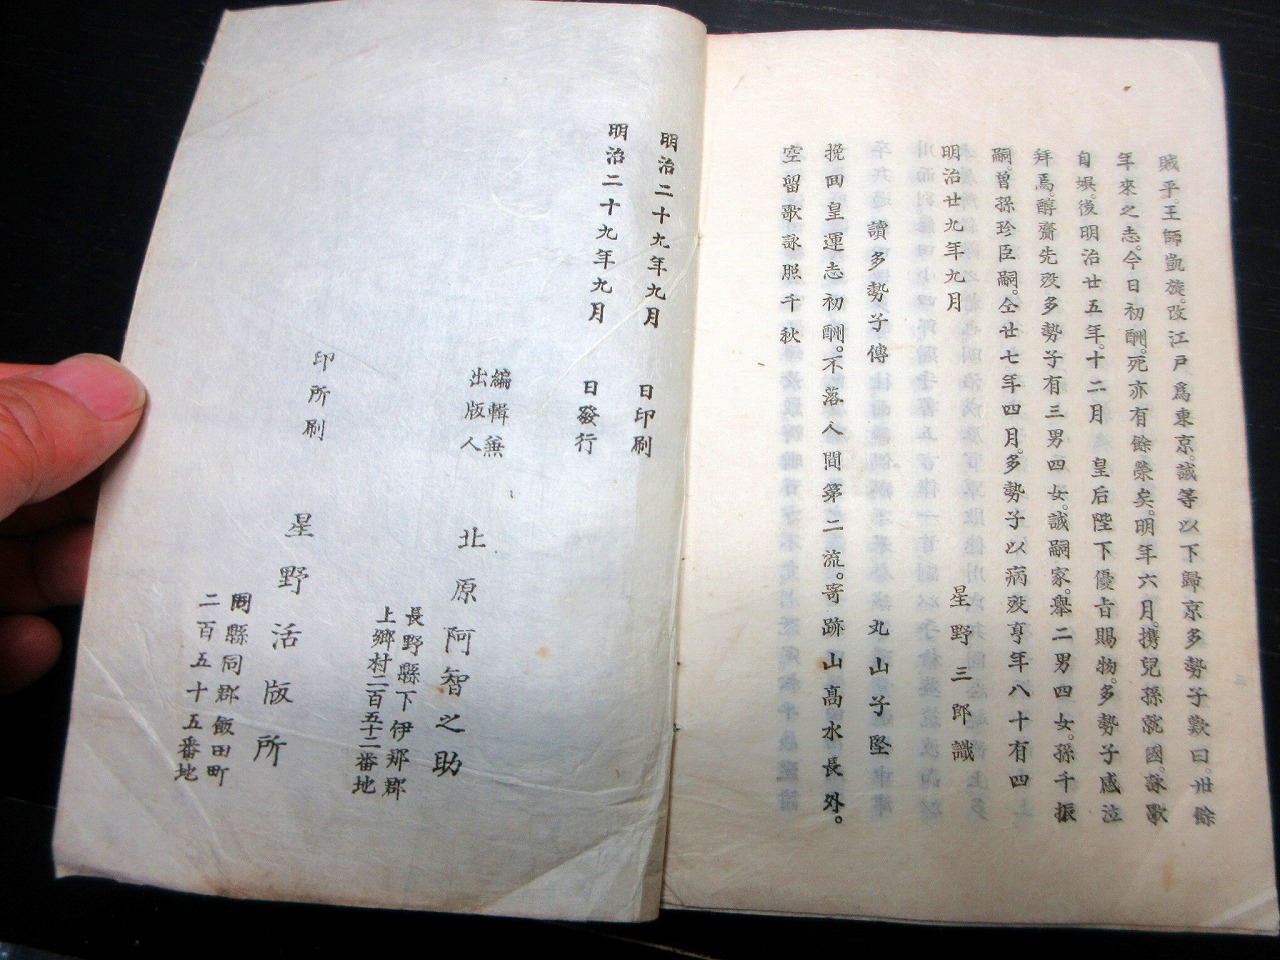 賊平。王師凱旋。改江戸爲東京。誠等以下歸京多勢子歎曰。卅餘
年來之志。今日初酬。死亦有餘榮矣。明年六月。携兒孫就國。詠歌
自娯。後明治廿五年。十二月　皇后陛下優旨賜物。多勢子感泣
拜焉。醇齋先歿多勢子有三男四女。誠嗣家。舉二男四女。孫千振
嗣。曾孫珍臣嗣。仝廿七年四月。多勢子以病歿亨年八十有四
明治廿九年九月　　星野三郎識
讀多勢子傳　　丸山子堅
挽回皇運志初酬。不落人間第二流。寄跡山高水長外。
空留歌詠照千秋
明治二十九年九月　日印刷
明治二十九年九月　日發行
編輯兼
出版人
北原阿智之助
長野縣下伊那郡
上郷村二百五十二番地
印所刷
星野活版所
同縣同郡飯田町
二百五十五番地